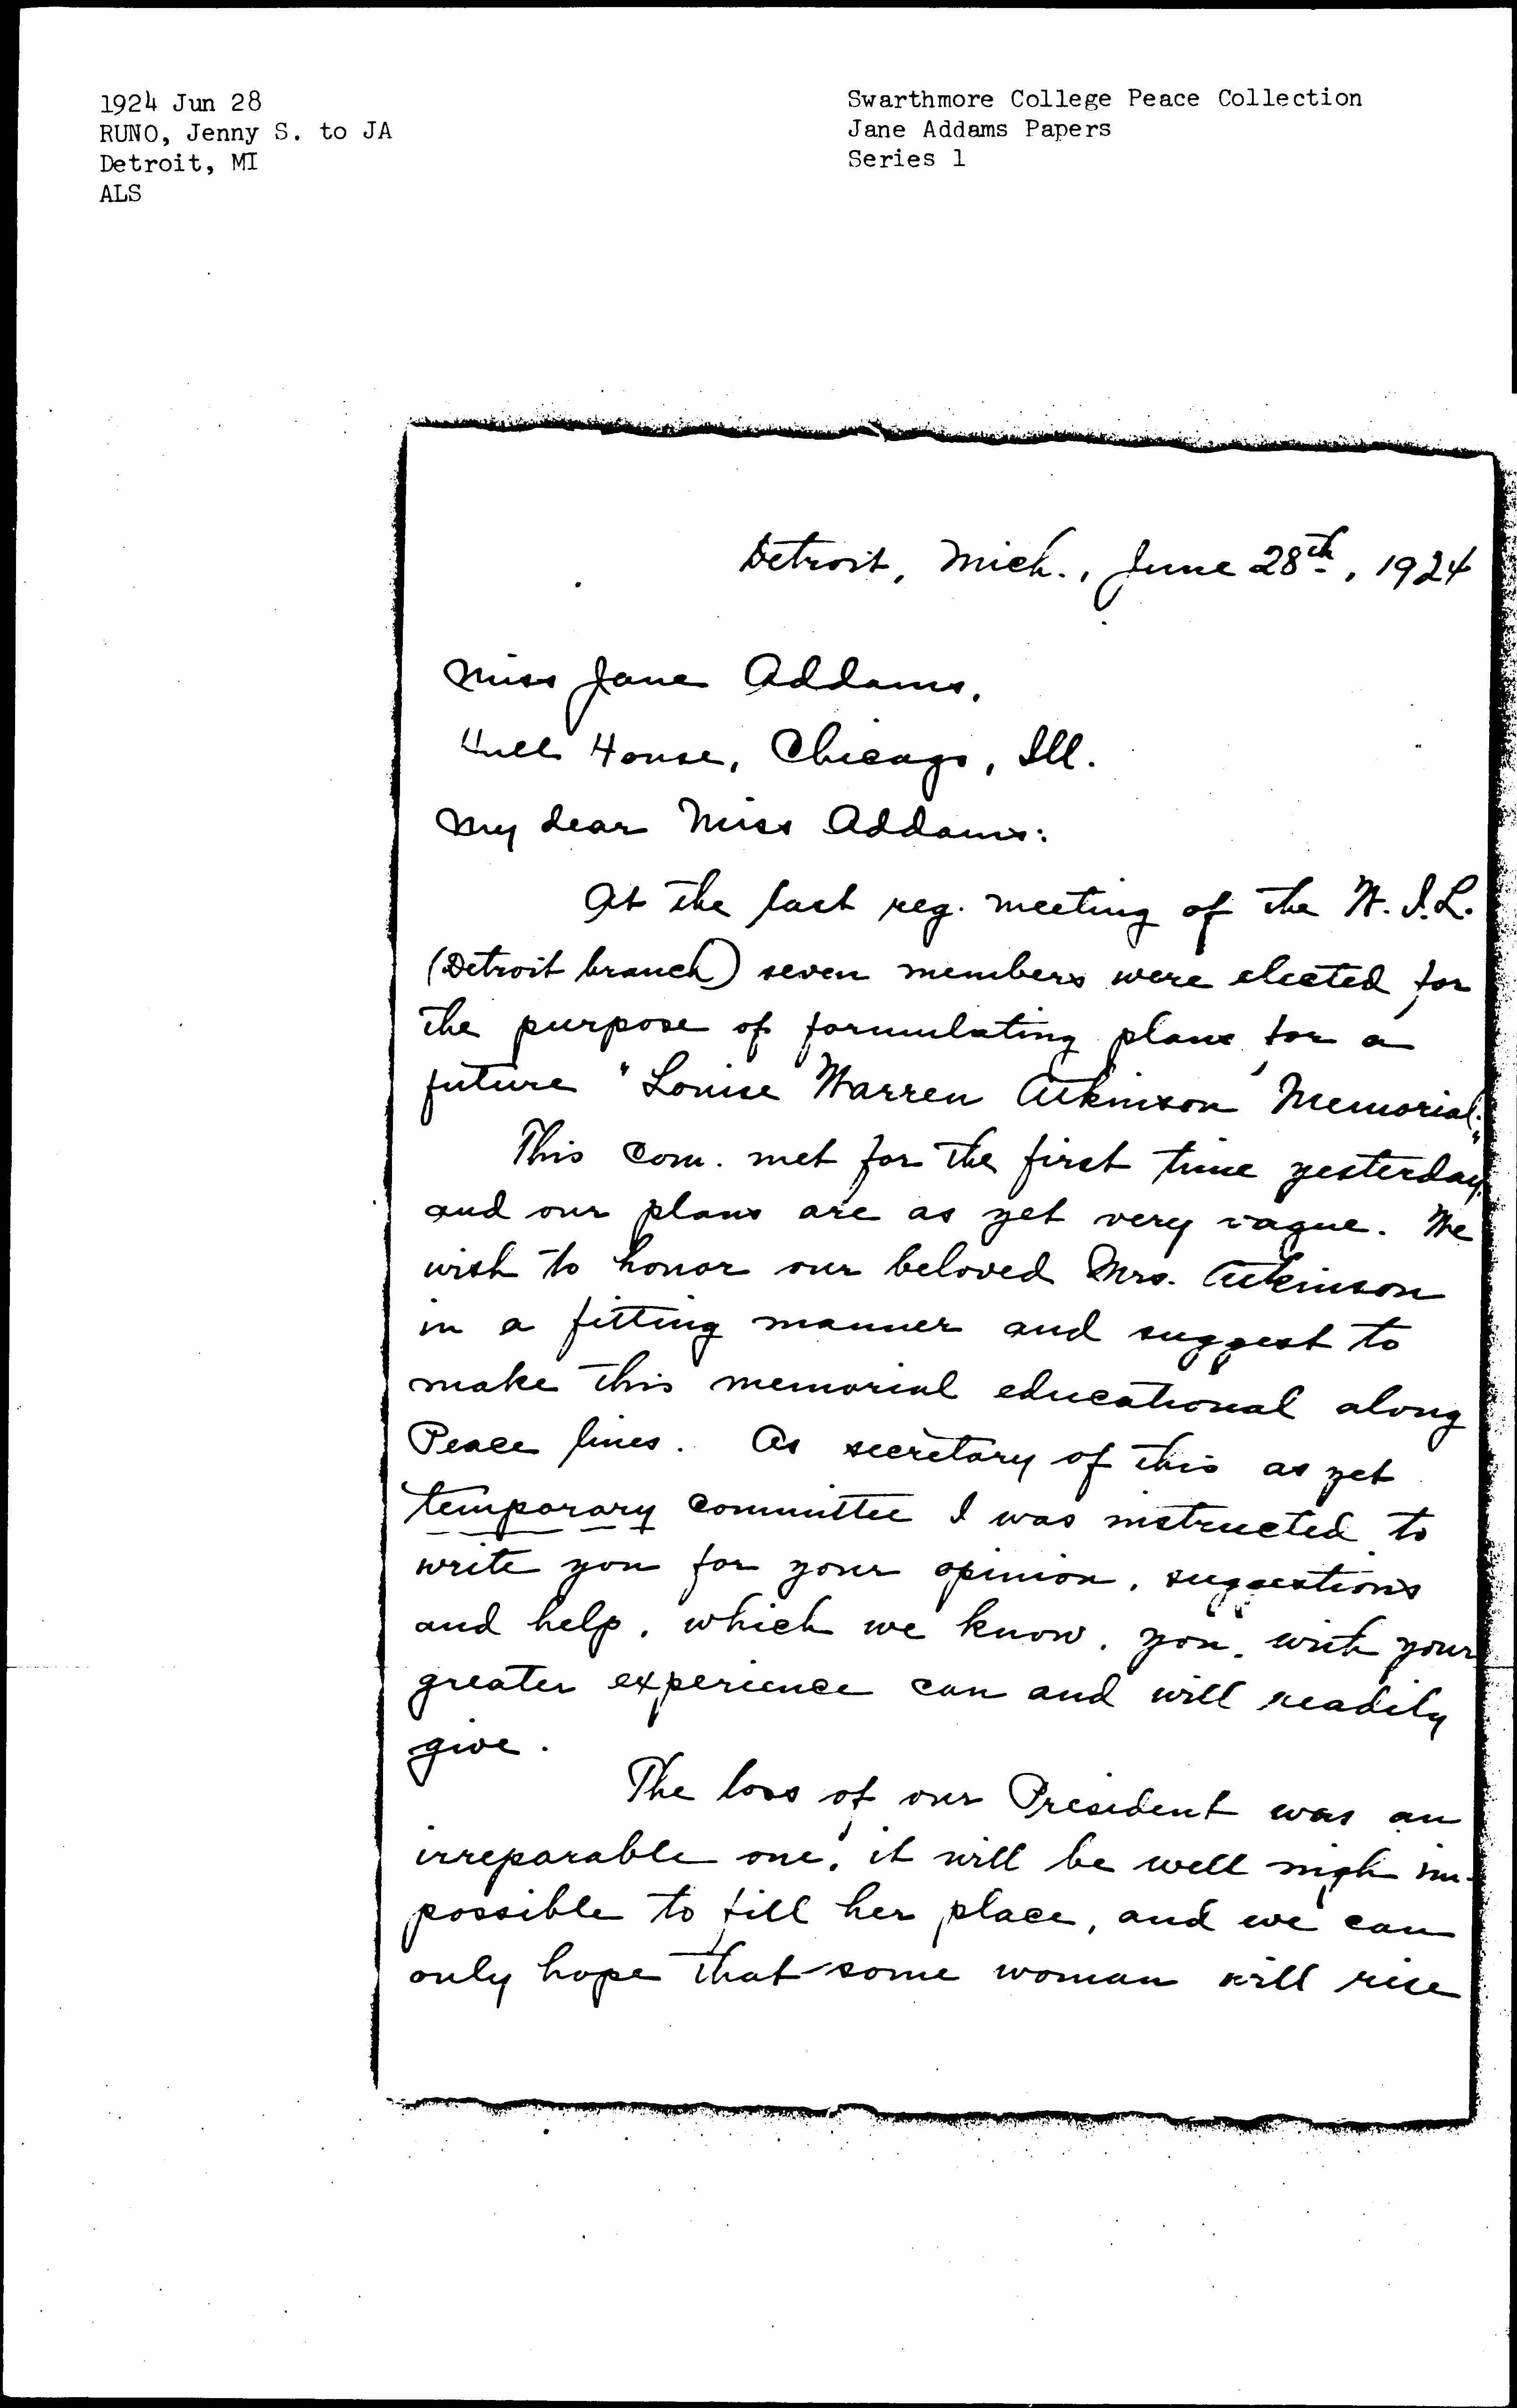 1924 Jun 28
RUNO, Jenny S. to JA
Detroit, MI
ALS
Swarthmore College Peace Collection
Jane Addams Papers
Series 1
Detroit, Mich., June 28th, 1924
Miss Jane Addams,
Hull House, Chicago, Ill.
My dear Miss Addams:
At the last reg. meeting of the W.I.L.
(Detroit branch) seven members were elected for
the purpose of formulating plans for a
future "Louise Warren Atkinson Memorial."
This com. met for the first time yesterday
and our plans are as yet very vague. We
wish to honor our beloved Mrs. Atkinson
in a fitting manner and suggest to
make this memorial educational along
Peace lines. As secretary of this as yet
temporary committee I was instructed to
write you for your opinion, suggestions
and help, which we know, you, with your
greater experience can and will readily
give.
The loss of our President was an
irreparable one, it will be well nigh im-
possible to fill her place, and we can
only hope that some woman will rise